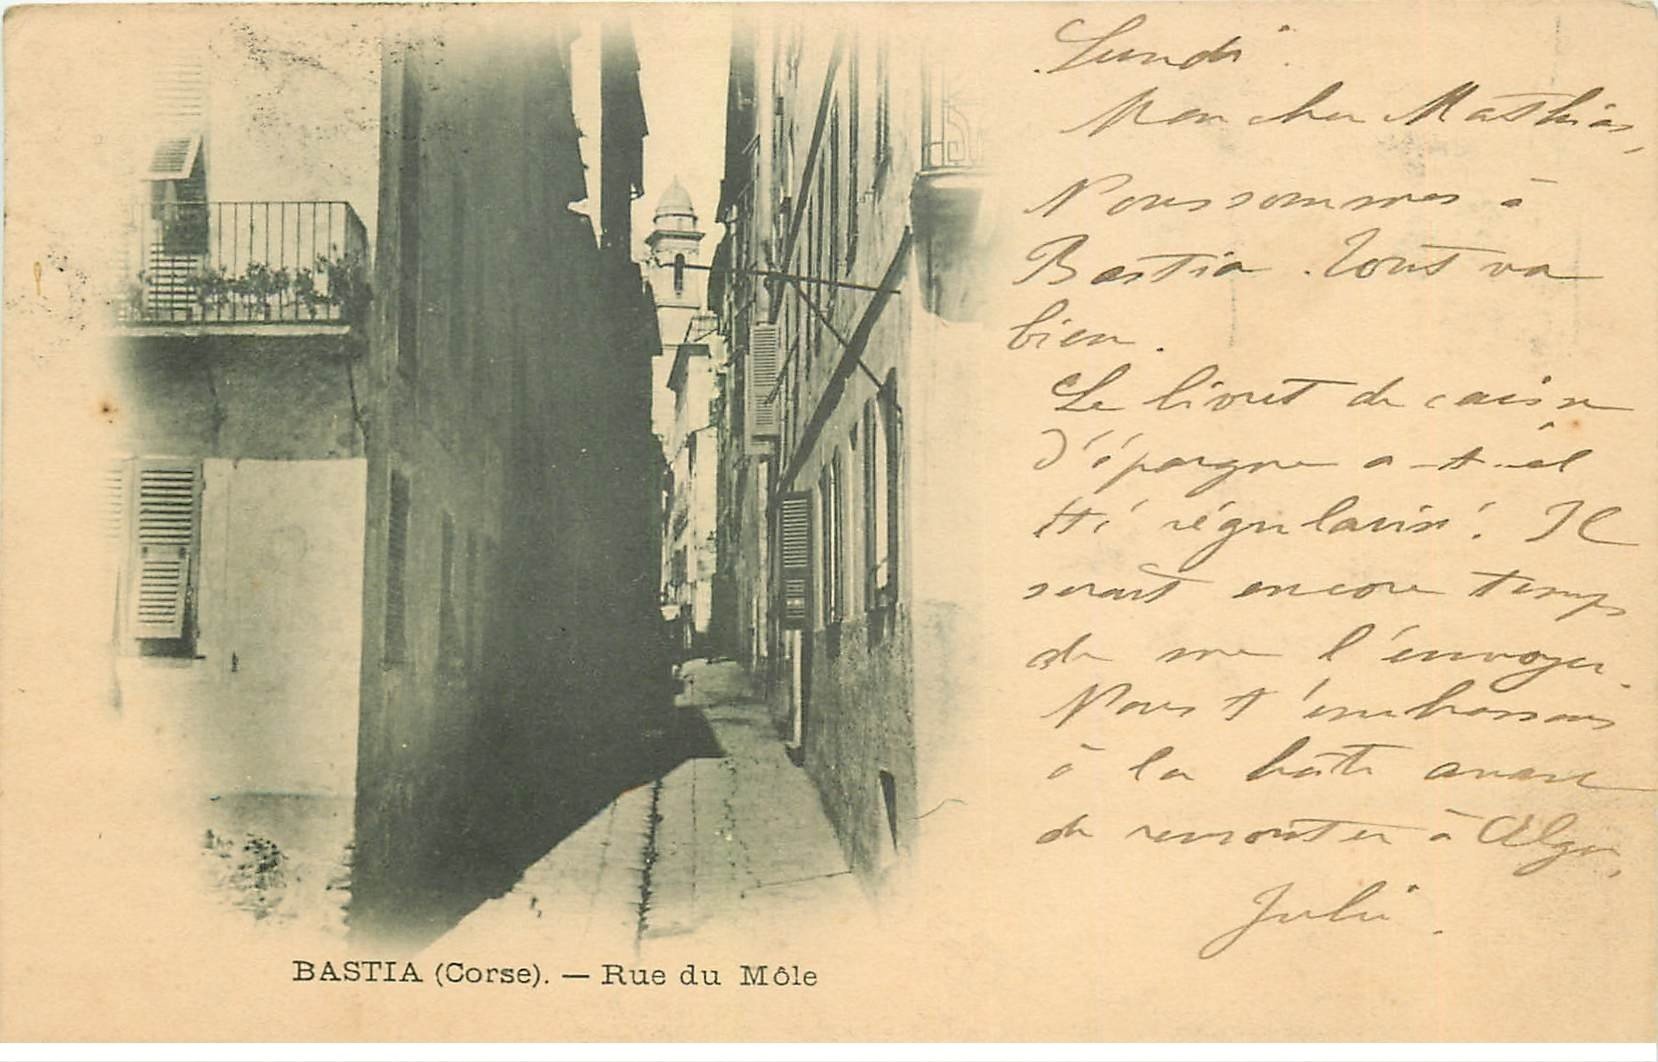 Lundi
Mon cher Mathias,
Nous sommes à
Bastia. Tout va
bien.
Le livret de caisse
d'épargne a-t-il
été régularisé? Il
serait encore temps
de me l'envoyer.
Nous t'embrassons
à la hâte avant
de remonter à
Julie.
BASTIA (Corse). — Rue du Môle